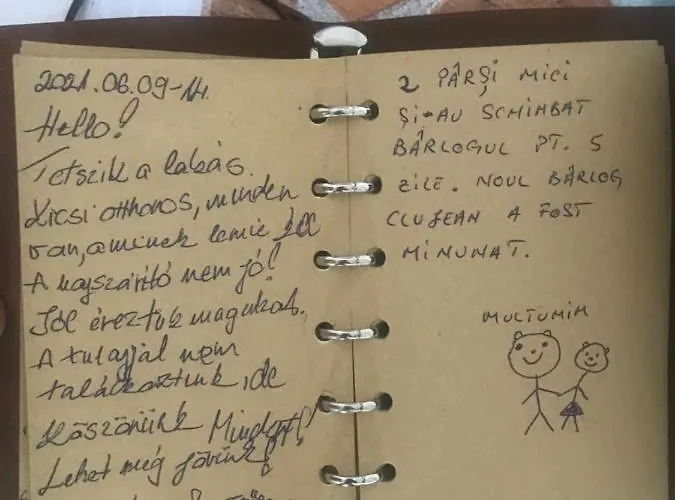 2021.06.09-14.
Hello!
Tetszik a lakás.
Kicsi otthonos, minden
van, aminek lennie kell
A hajszárító nem jó!
Jól éreztük magunkat.
A tulajjal nem
találkoztunk, de
Köszönünk Mindent!
Lehet még jövünk!
2 PÂRȘI MICI
ȘI-AU SCHIMBAT
BÂRLOGUL PT. 5
ZILE. NOUL BÂRLOG
CLUJEAN A FOST
MINUNAT.
MULTUMIM